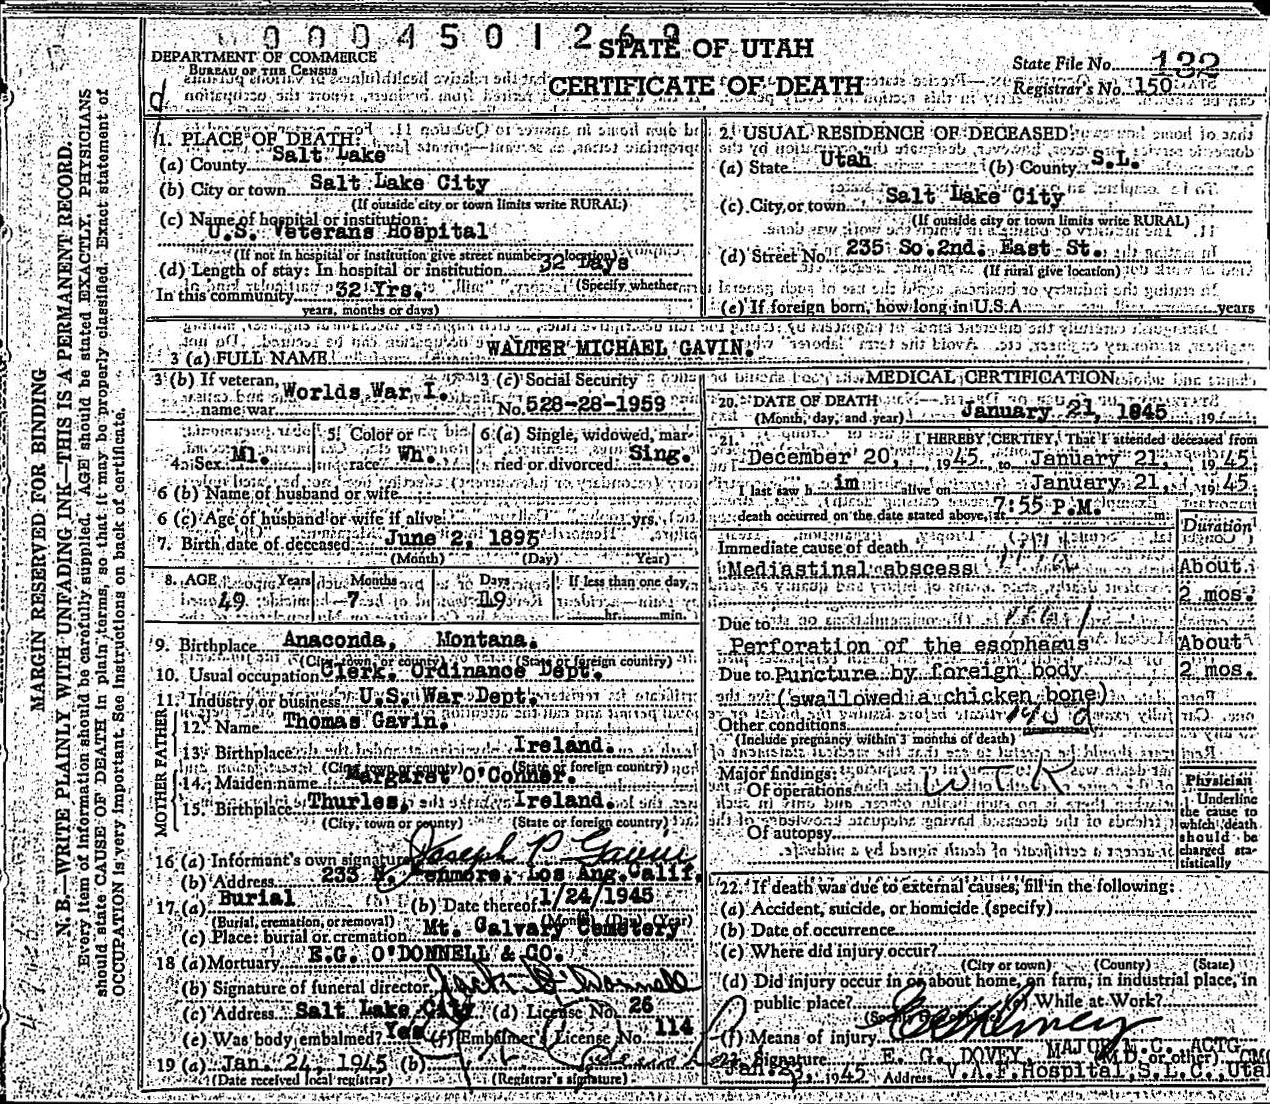 000450126
STATE OF UTAH
CERTIFICATE OF DEATH
DEPARTMENT OF COMMERCE
BUREAU OF THE CENSUS
State File No. 132
Registrar's No. 150
d
MARGIN RESERVED FOR BINDING
N. B.—WRITE PLAINLY WITH UNFADING INK—THIS IS A PERMANENT RECORD.
Every item of information should be carefully supplied. AGE should be stated EXACTLY. PHYSICIANS
should state CAUSE OF DEATH in plain terms, so that it may be properly classified. Exact statement of
OCCUPATION is very important. See instructions on back of certificate.
1. PLACE OF DEATH:
(a) County Salt Lake
(b) City or town Salt Lake City
(If outside city or town limits write RURAL)
(c) Name of hospital or institution:
U.S. Veterans Hospital
(If not in hospital or institution give street number location)
(d) Length of stay: In hospital or institution 32 Days
(Specify whether
In this community 32 Yrs.
years, months or days)
2. USUAL RESIDENCE OF DECEASED
(a) State Utah (b) County S.L.
(c) City or town Salt Lake City
(If outside city or town limits write RURAL)
(d) Street No. 235 So. 2nd. East St.
(If rural give location)
(e) If foreign born, how long in U.S.A. years
3 (a) FULL NAME WALTER MICHAEL GAVIN.
3 (b) If veteran, name war Worlds War I.
3 (c) Social Security No. 528-28-1959
4. Sex Ml.
5. Color or race Wh.
6 (a) Single, widowed, married or divorced Sing.
6 (b) Name of husband or wife
6 (c) Age of husband or wife if alive yrs.
7. Birth date of deceased June 2, 1895
(Month) (Day) Year)
8. AGE Years Months Days If less than one day
49 7 19 hr. min.
9. Birthplace Anaconda, Montana.
(City, town, or county) (State or foreign country)
10. Usual occupation Clerk. Ordinance Dept.
11. Industry or business U.S. War Dept.
FATHER
12. Name Thomas Gavin.
13. Birthplace Ireland.
(City, town or county) (State or foreign country)
MOTHER
14. Maiden name Margaret O'Conner.
15. Birthplace Thurles, Ireland.
(City, town or county) (State or foreign country)
16 (a) Informant's own signature Joseph P Gavin
(b) Address 233 N. Kenmore. Los Ang. Calif.
17. (a) Burial (b) Date thereof 1/24/1945
(Burial, cremation, or removal) (Month) (Day) (Year)
(c) Place: burial or cremation Mt. Calvary Cemetery
18 (a) Mortuary E.G. O'DONNELL & CO.
(b) Signature of funeral director
(c) Address Salt Lake City (d) License No. 26
(e) Was body embalmed? Yes (f) Embalmer's License No. 114
19 (a) Jan. 24, 1945 (b)
(Date received local registrar) (Registrar's signature)
MEDICAL CERTIFICATION
20. DATE OF DEATH
(Month, day, and year) January 21, 1945 19
21. I HEREBY CERTIFY, That I attended deceased from
December 20, 1945, to January 21, 1945.
I last saw him alive on January 21, 1945.
death occurred on the date stated above, at 7:55 P.M. m.
Duration
Immediate cause of death
Mediastinal abscess About 2 mos.
Due to
Perforation of the esophagus About 2 mos.
Due to Puncture by foreign body
(swallowed a chicken bone)
Other conditions
(Include pregnancy within 3 months of death)
Major findings:
Of operations
Of autopsy
Physician
Underline
the cause to
which death
should be
charged sta-
tistically
22. If death was due to external causes, fill in the following:
(a) Accident, suicide, or homicide (specify)
(b) Date of occurrence
(c) Where did injury occur?
(City or town) (County) (State)
(d) Did injury occur in or about home, on farm, in industrial place, in
public place? While at Work?
(f) Means of injury
23. Signature E. G. DOVEY, MAJOR M.C. ACTG
(M.D. or other)
Jan. 23, 1945 Address V.A.F. Hospital, S.L.C., Utah